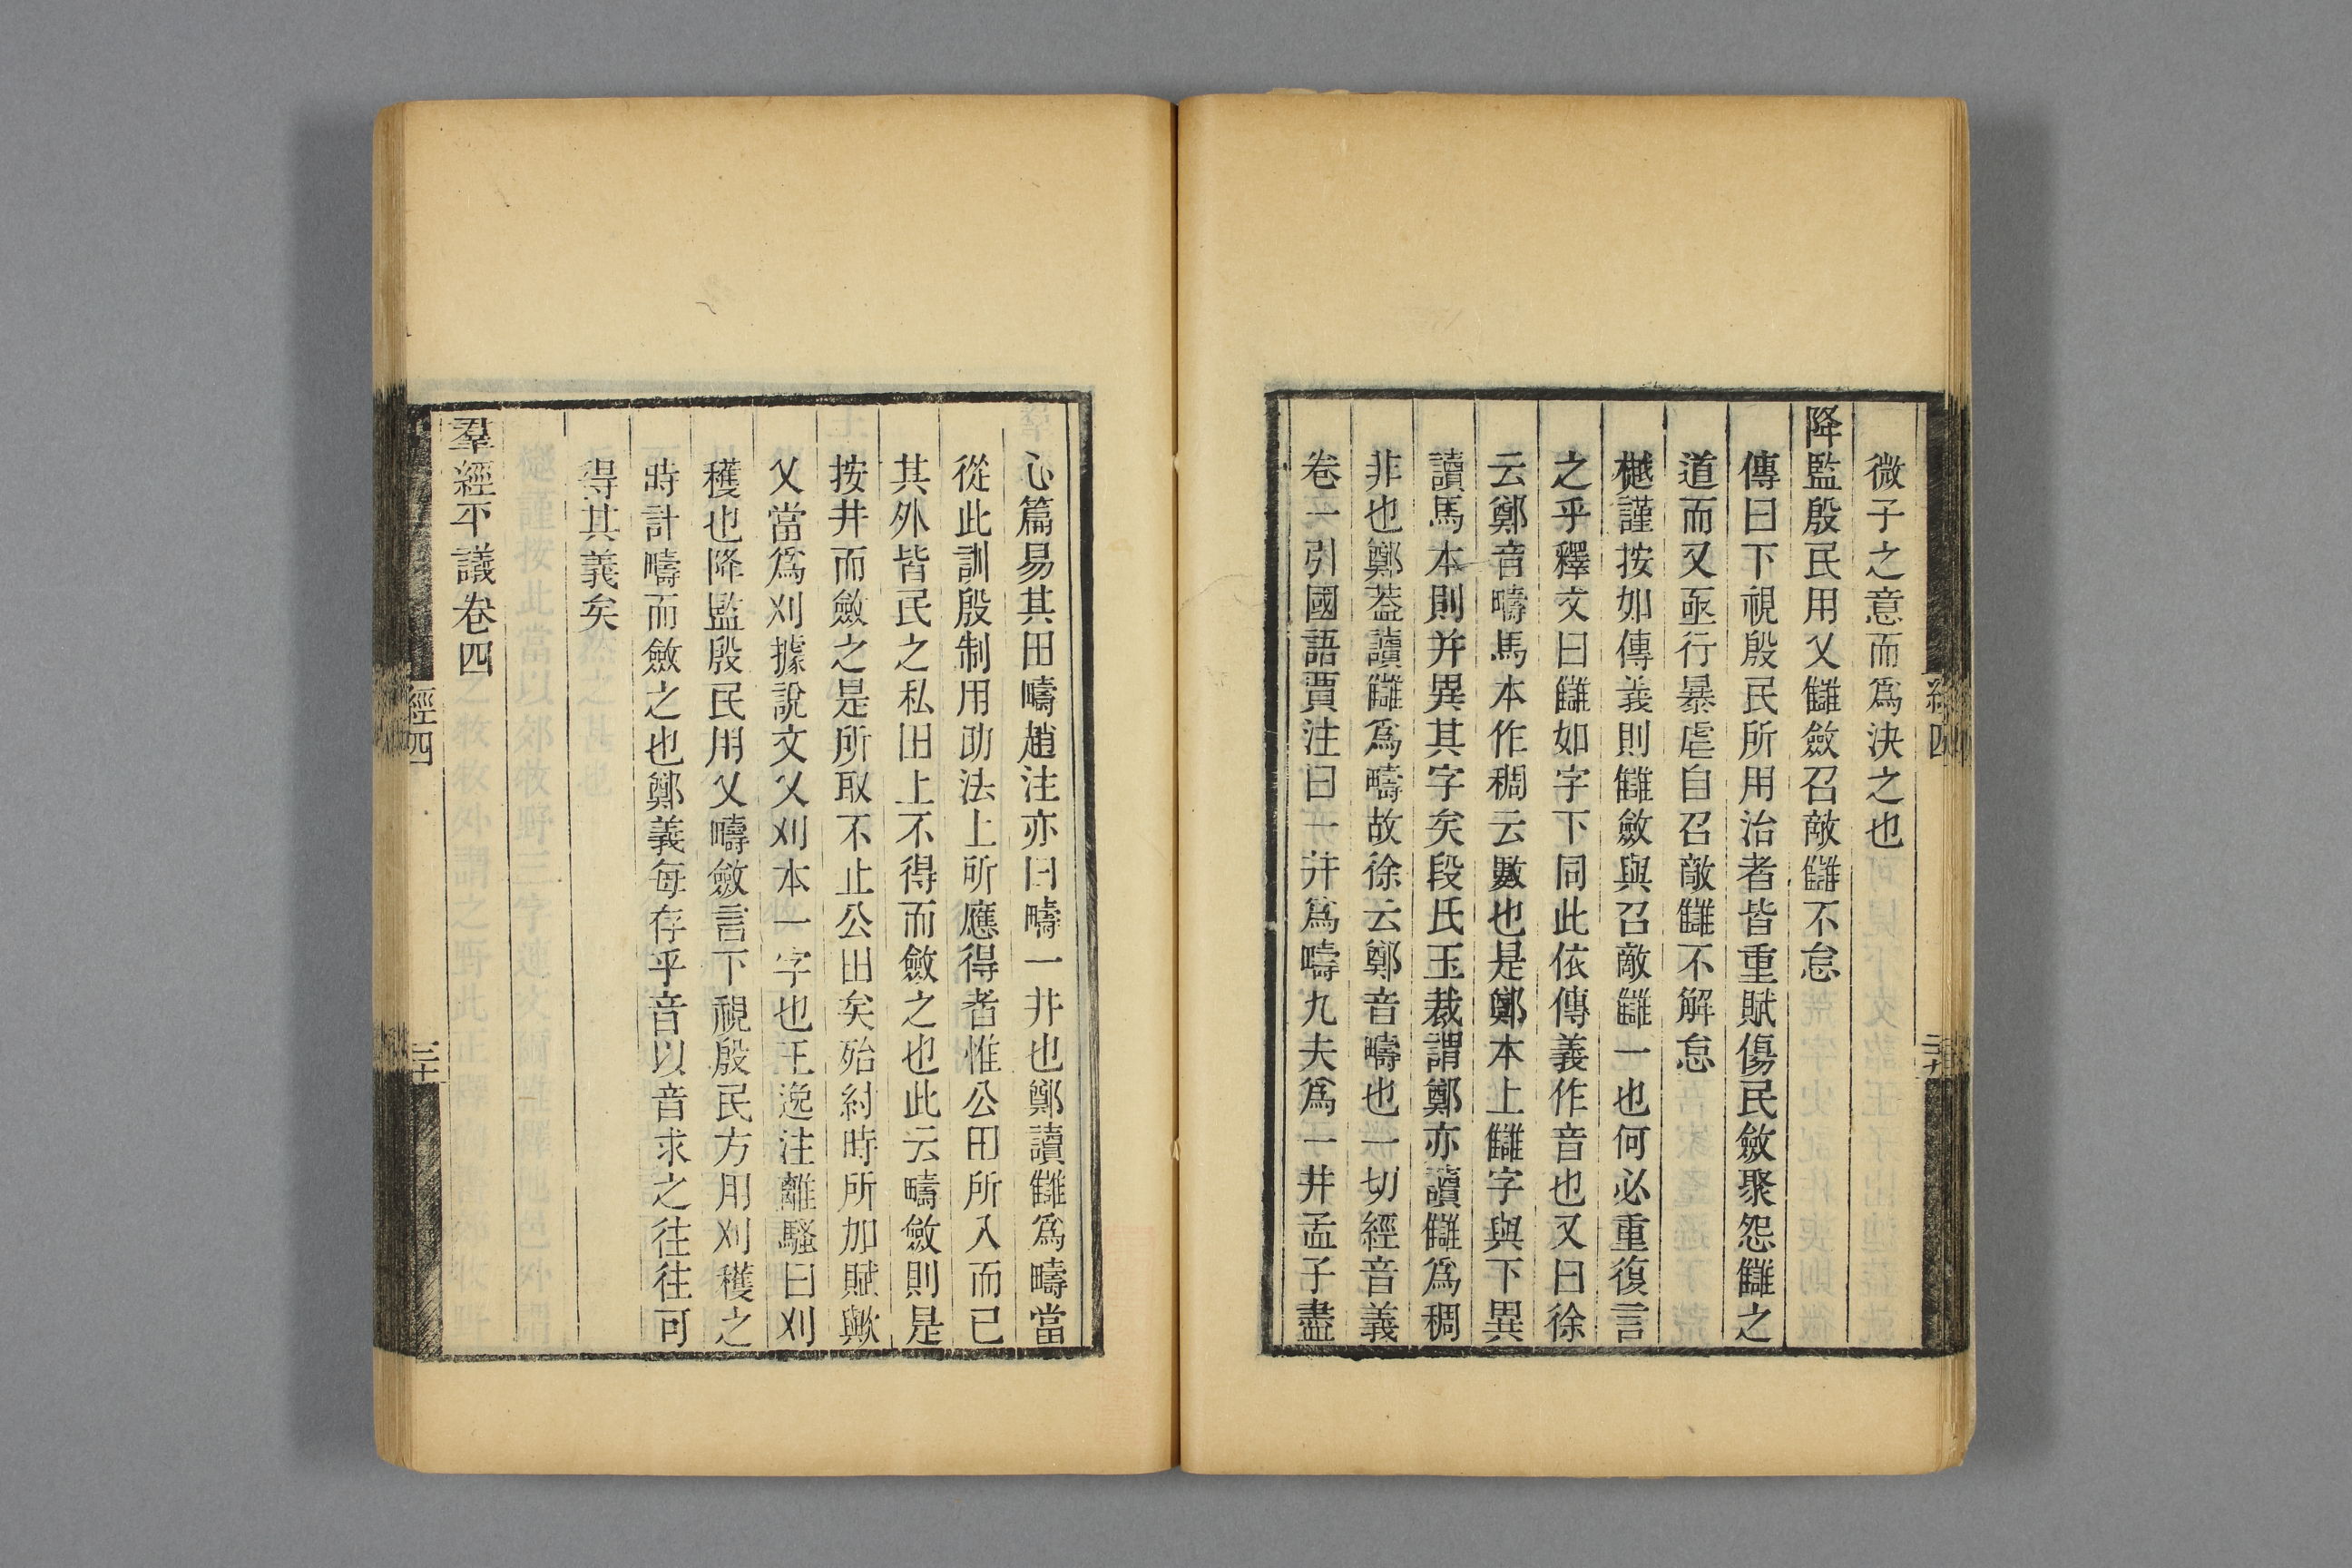 微子之意而爲決之也
降監殷民用乂讎斂召敵讎不怠
傳曰下視殷民所用治者皆重賦傷民斂聚怨讎之
道而又亟行暴虐自召敵讎不解怠
樾謹按如傳義則讎斂與召敵讎一也何必重復言
之乎釋文曰讎如字下同此依傳義作音也又曰徐
云鄭音疇馬本作稠云數也是鄭本上讎字與下異
讀馬本則幷異其字矣段氏玉裁謂鄭亦讀讎爲稠
非也鄭葢讀讎爲疇故徐云鄭音疇也一切經音義
卷一引國語賈注曰一井爲疇九夫爲一井孟子盡
心篇易其田疇趙注亦曰疇一井也鄭讀讎爲疇當
從此訓殷制用助法上所應得者惟公田所入而已
其外皆民之私田上不得而斂之也此云疇斂則是
按井而斂之是所取不止公田矣殆紂時所加賦歟
乂當爲刈據說文乂刈本一字也王逸注離騷曰刈
穫也降監殷民用乂疇斂言下視殷民方用刈穫之
時計疇而斂之也鄭義每存乎音以音求之往往可
得其義矣
羣經平議卷四
經四
三十